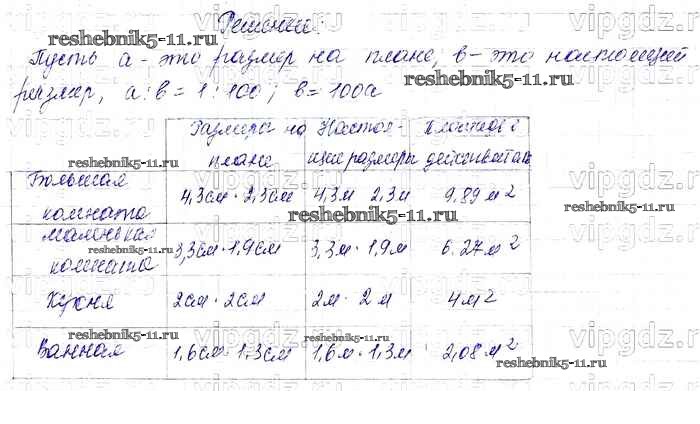 Решение:
Пусть a - это размер на плане, в - это настоящий
размер, a : в = 1 : 100 ; в = 100a
Размеры на плане
Настоящие размеры
Площадь действительн
Большая комната
4,3см · 2,3см
4,3м 2,3м
9,89 м²
Маленькая комната
3,3см · 1,9см
3,3м · 1,9м
6.27м²
Кухня
2см · 2см
2м · 2м
4м²
Ванная
1,6см · 1,3см
1,6м · 1,3м
2,08м²
reshebnik5-11.ru
reshebnik5-11.ru
reshebnik5-11.ru
reshebnik5-11.ru
reshebnik5-11.ru
reshebnik5-11.ru
reshebnik5-11.ru
reshebnik5-11.ru
reshebnik5-11.ru
vipgdz.ru
vipgdz.ru
vipgdz.ru
vipgdz.ru